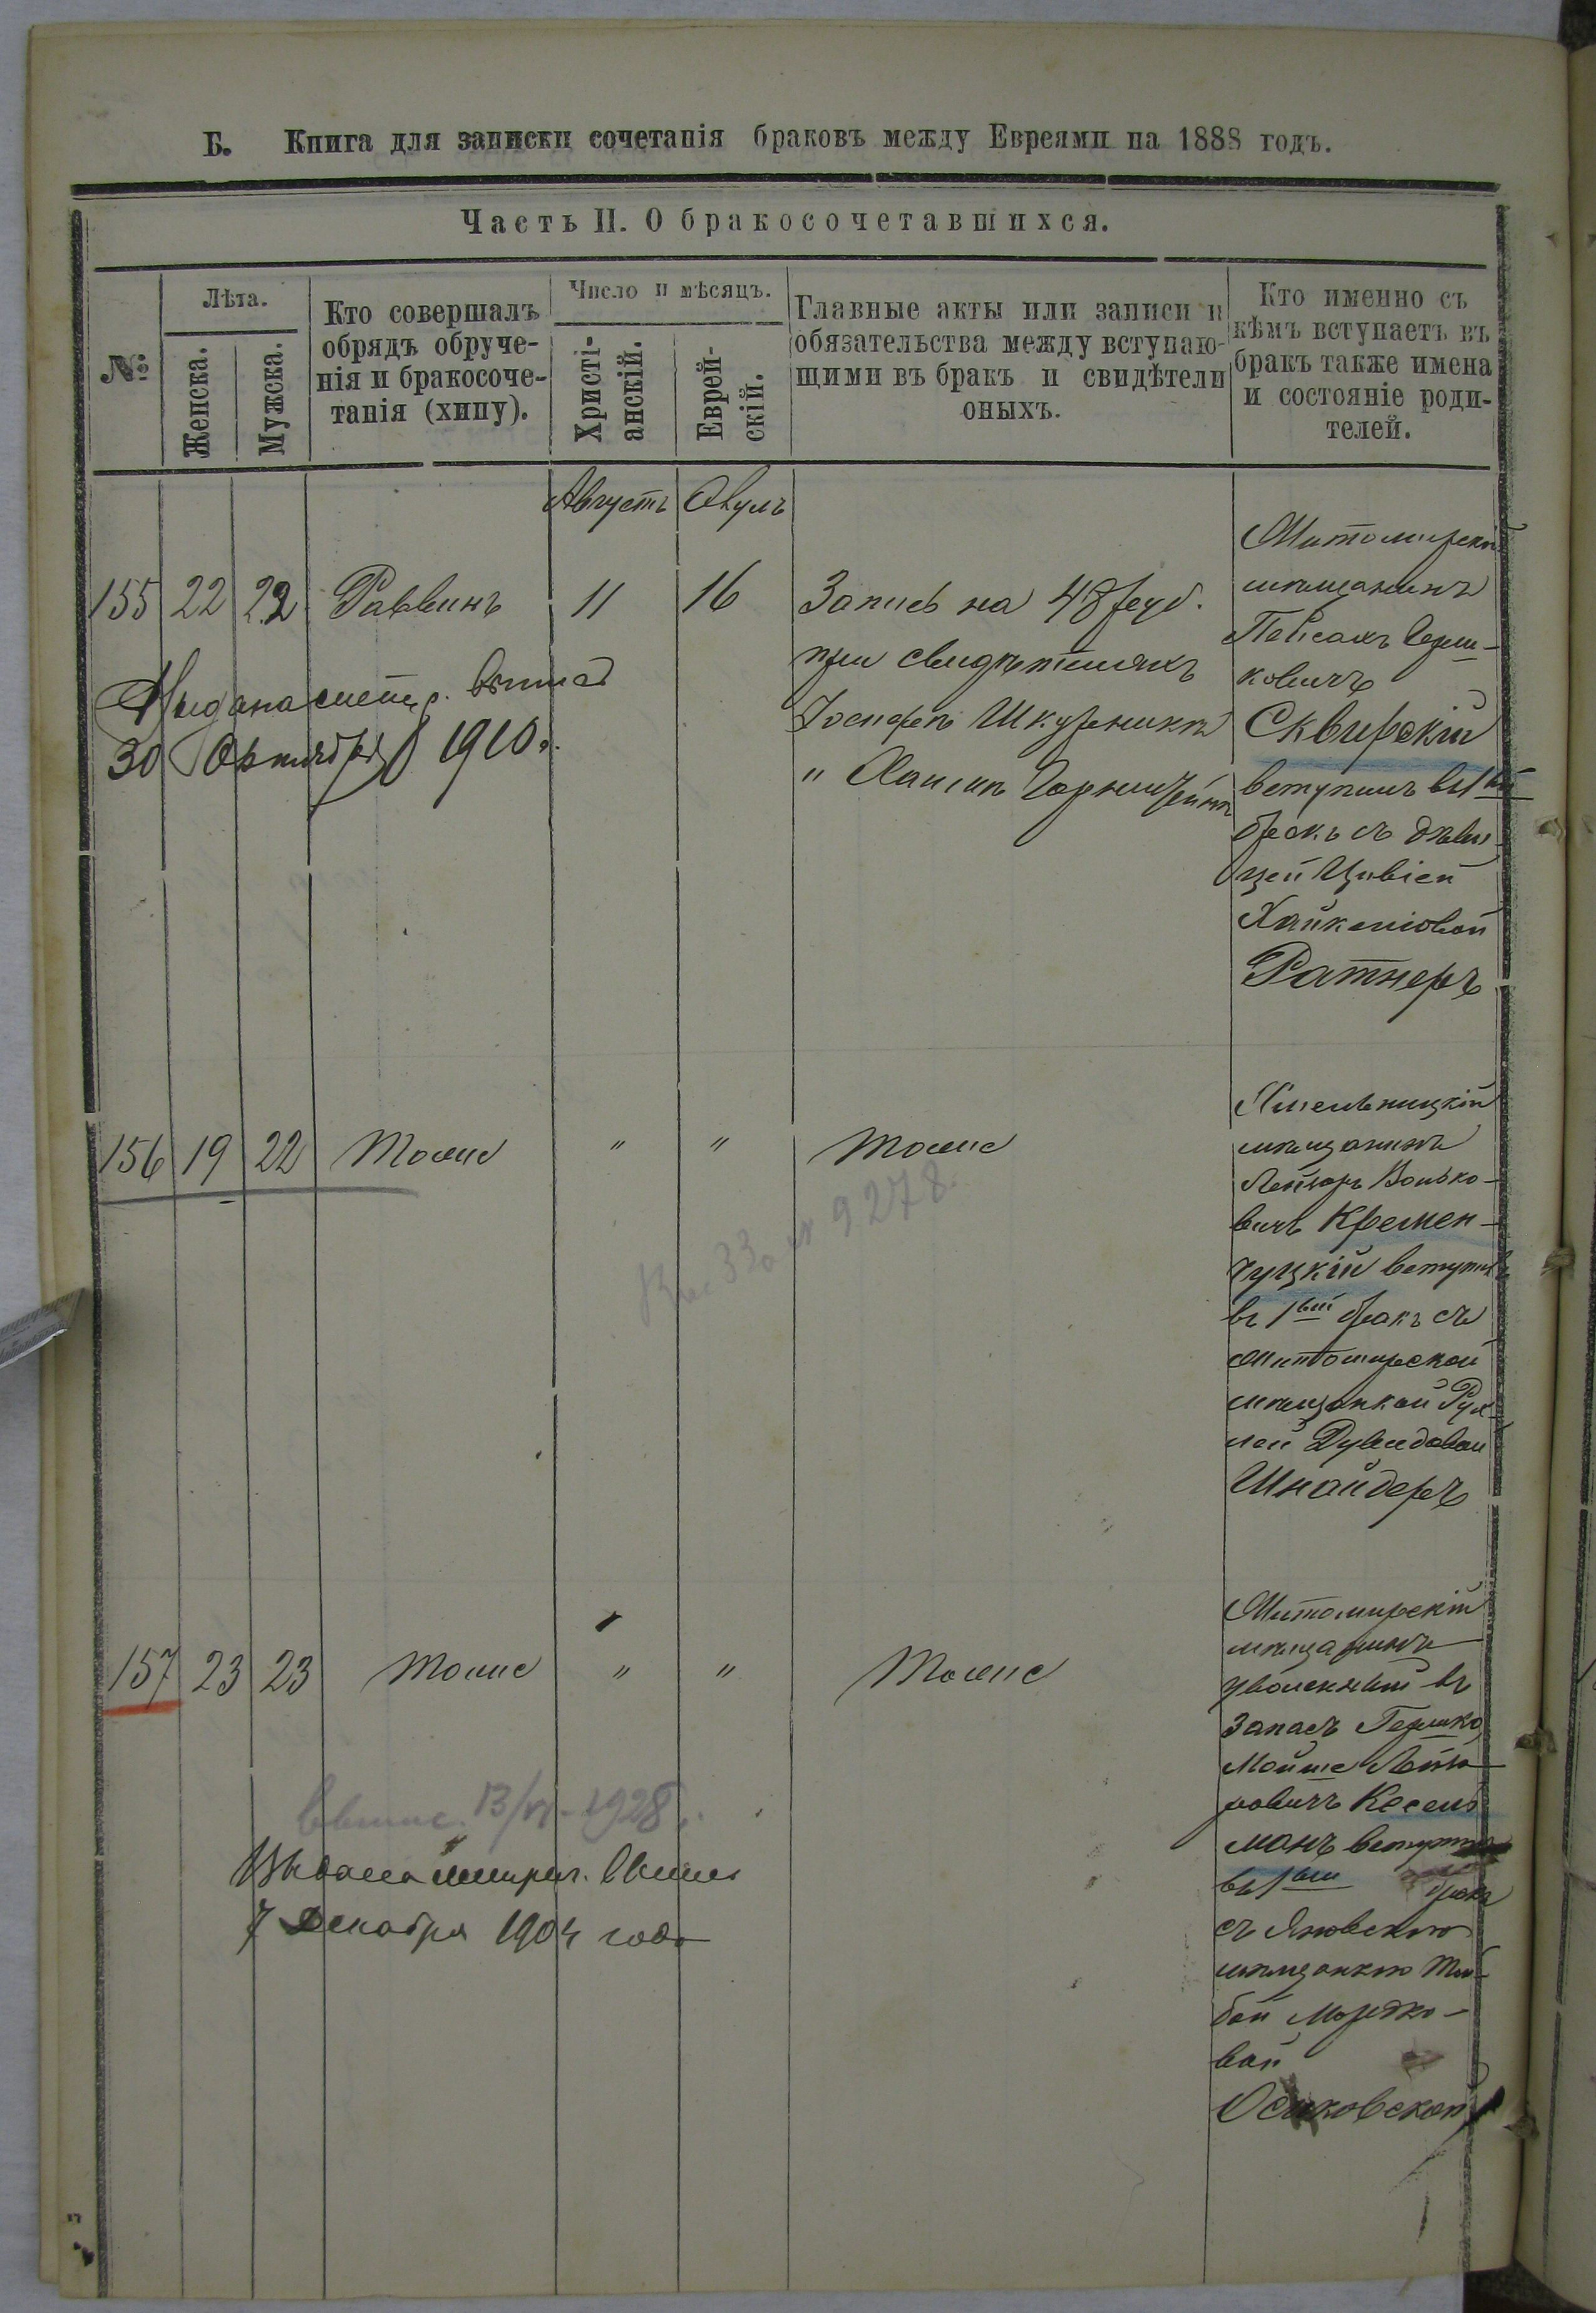 Б. Книга для записки сочетанія браковъ между Евреями на 1888 годъ.
Часть II. О бракосочетавшихся.
№
Лѣта.
Женска.
Мужска.
Кто совершалъ
обрядъ обруче-
нія и бракосоче-
танія (хипу).
Число и мѣсяцъ.
Христі-
анскій.
Еврей-
скій.
Главные акты или записи и
обязательства между вступаю-
щими въ бракъ и свидѣтели
оныхъ.
Кто именно съ
кѣмъ вступаетъ въ
бракъ также имена
и состояніе роди-
телей.
Августъ
155 22 22 Раввинъ 11 16
Запись на 48 руб.
при свидѣтеляхъ
Іосифъ Шкурникъ
"
Житомирскій
мѣщанинъ
Пейсахъ Герш-
ковичъ
Сквирскій
вступилъ въ 1ый
бракъ съ дѣви-
цей Цивіей
Хайкелювой
Ратнеръ
30 Октября 1910 г.
156 19 22 Тоже " " Тоже
Хмельницкій
мѣщанинъ
Лейзоръ Волько-
вичъ Кремен-
чуцкій вступилъ
въ 1ый бракъ съ
Житомирской
мѣщанкой Рух-
лей Дувидовой
Шнайдеръ
9278
157 23 23 Тоже " " Тоже
Житомирскій
мѣщанинъ
уволенный въ
запасъ Гершко
Мойше Лейзо-
ровичъ Кесель
манъ вступилъ
въ 1ый бракъ
съ Яновскою
мѣщанкою То-
бой Мордко-
вой
Осиковской
1928
Выдана метрич. выпись
7 Декабря 1904 года